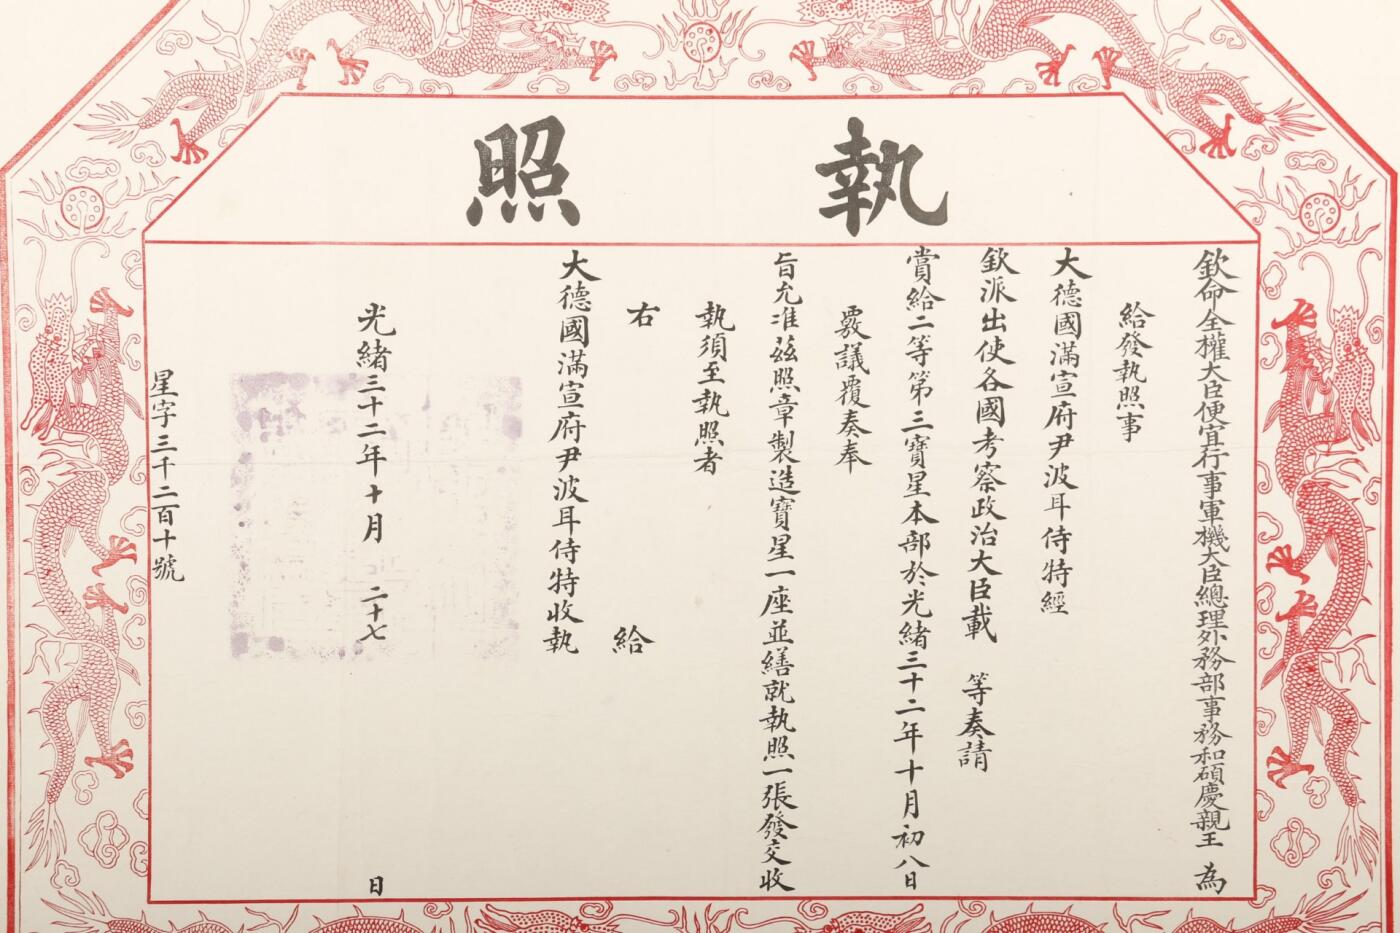 執照
欽命全權大臣便宜行事軍機大臣總理外務部事務和碩慶親王 為
給發執照事
大德國滿宣府尹波耳侍特經
欽派出使各國考察政治大臣載 等奏請
賞給二等第三寶星本部於光緒三十二年十月初八日
覈議覆奏奉
旨允准茲照章製造寶星一座並繕就執照一張發交收
執須至執照者
右 給
大德國滿宣府尹波耳侍特收執
光緒三十二年十月 二十七 日
星字三千二百十號